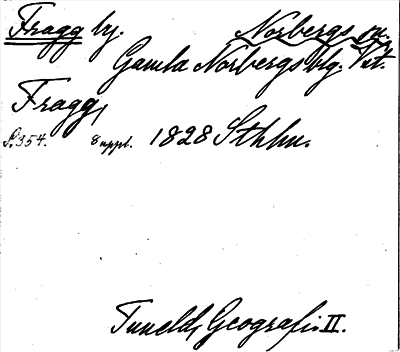 Fragg by. Norbergs sn.
Gamla Norbergs blg. Vst.
Fragg,
S. 354. 8 uppl. 1828 Sthlm.
Tuneld, Geografi II.